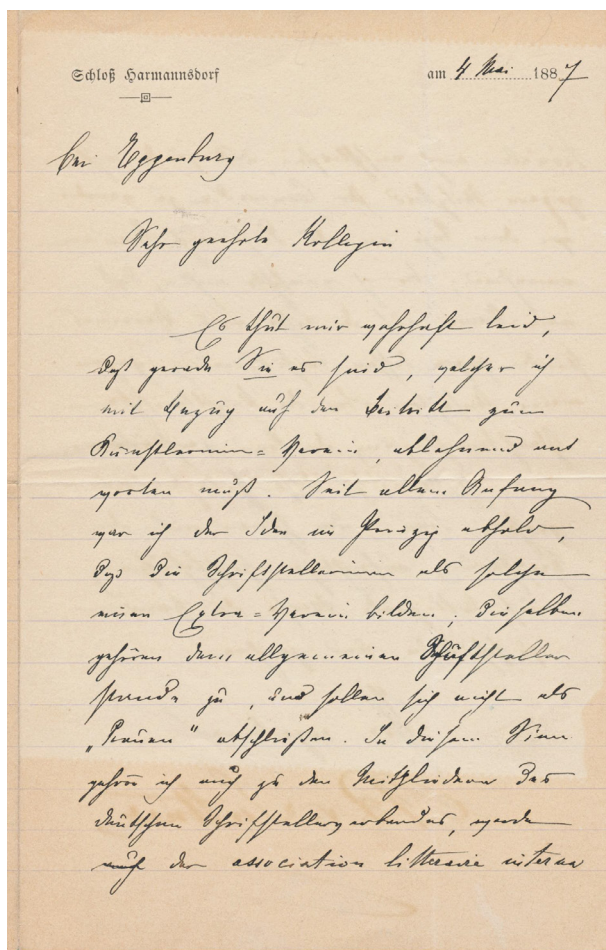 Schloß Harmannsdorf
am 4 Mai 1887
bei Eggenburg
Sehr geehrte Kollegin
Es thut mir wahrhaft leid,
daß gerade Sie es sind, welcher ich
mit Bezug auf den Beitritt zum
Künstlerinen-Verein, ablehnend ant
worten muß. Seit allem Anfang
war ich der Idee im Prinzip abhold,
daß die Schriftstellerinnen als solche
einen Extra-Verein bilden; dieselben
gehören dem allgemeinen Schriftsteller
stande zu, und sollen sich nicht als
„Frauen" abschließen. In diesem Sinne
gehöre ich auch zu den Mitgliedern des
deutschen Schriftstellerverbandes, werde
auch der association litteraire interna